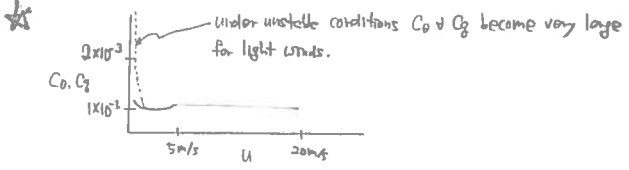 under unstable conditions Cθ & Cq become very large
for light winds.
2x10⁻³
Cθ, Cq
1x10⁻³
5m/s
U
20m/s